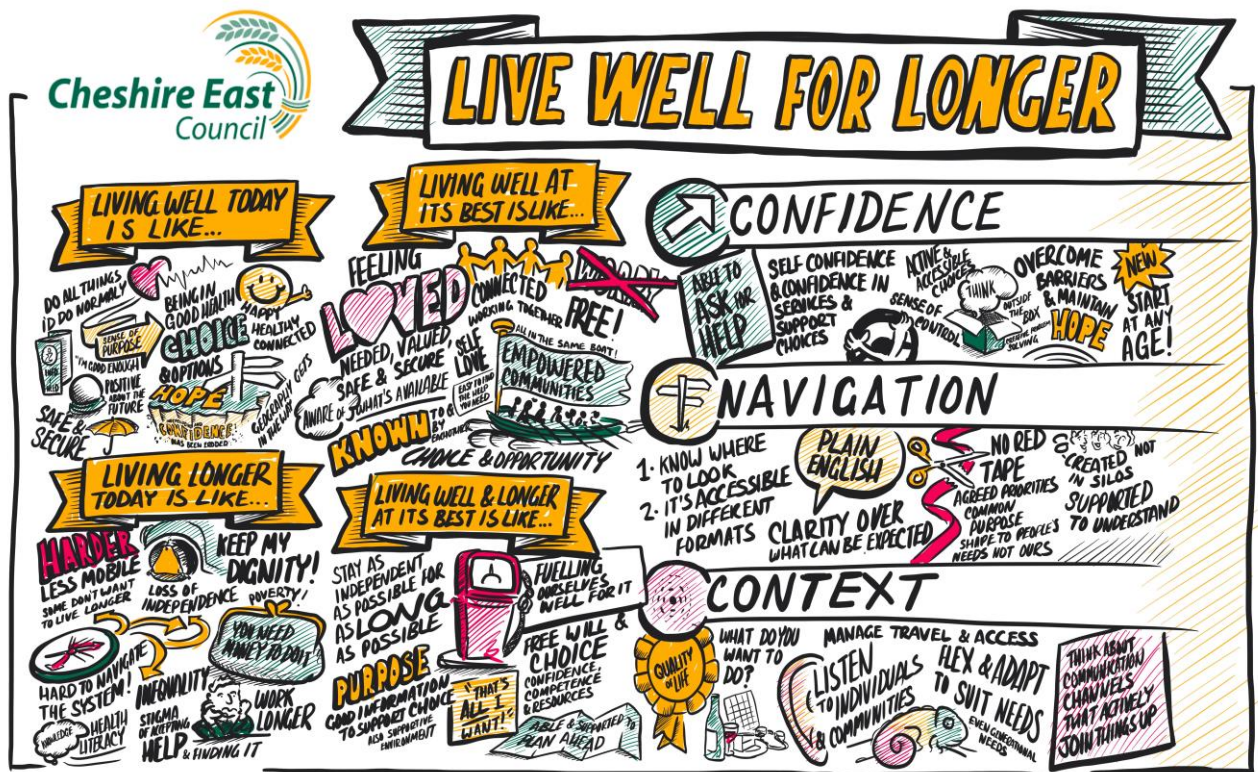 Cheshire East
Council
LIVE WELL FOR LONGER
LIVING WELL TODAY
IS LIKE...
DO ALL THINGS
I'D DO NORMALY
BEING IN
GOOD HEALTH
HAPPY
HEALTHY
CONNECTED
SENSE OF
PURPOSE
"I'M GOOD ENOUGH"
CHOICE
& OPTIONS
POSITIVE
ABOUT THE
FUTURE
HOPE
CONFIDENCE
HAS BEEN ERODED
GEOGRAPHY GETS
IN THE WAY
SAFE &
SECURE
LIVING LONGER
TODAY IS LIKE...
HARDER
LESS MOBILE
SOME DON'T WANT
TO LIVE LONGER
LOSS OF
INDEPENDENCE
KEEP MY
DIGNITY!
POVERTY!
YOU NEED
MONEY TO DO IT
HARD TO NAVIGATE
THE SYSTEM!
KNOWLEDGE
HEALTH
LITERACY
INEQUALITY
STIGMA
OF ACCEPTING
HELP & FINDING IT
WORK
LONGER
LIVING WELL AT
ITS BEST IS LIKE...
FEELING
LOVED
NEEDED, VALUED,
SAFE & SECURE
CONNECTED
WORKING TOGETHER
FREE!
SELF
LOVE
ALL IN THE SAME BOAT!
EMPOWERED
COMMUNITIES
EASY TO FIND
THE HELP
YOU NEED
AWARE OF WHAT'S AVAILABLE
KNOWN TO & BY
EACHOTHER
CHOICE & OPPORTUNITY
LIVING WELL & LONGER
AT ITS BEST IS LIKE...
STAY AS
INDEPENDENT
AS POSSIBLE FOR
AS LONG
AS POSSIBLE
FUELLING
OURSELVES
WELL FOR IT
PURPOSE
GOOD INFORMATION
TO SUPPORT CHOICE
ALSO SUPPORTIVE
ENVIRONMENT
"THAT'S
ALL I
WANT!"
FREE WILL &
CHOICE
CONFIDENCE,
COMPETENCE
& RESOURCES
ABLE & SUPPORTED TO
PLAN AHEAD
CONFIDENCE
ABLE TO
ASK FOR
HELP
SELF CONFIDENCE
& CONFIDENCE IN
SERVICES &
SUPPORT
CHOICES
ACTIVE &
ACCESSIBLE
CHOICES
SENSE OF
CONTROL
THINK
OUTSIDE
THE BOX
CREATIVE PROBLEM
SOLVING
OVERCOME
BARRIERS
& MAINTAIN
HOPE
NEW
START
AT ANY
AGE!
NAVIGATION
1. KNOW WHERE
TO LOOK
2. IT'S ACCESSIBLE
IN DIFFERENT
FORMATS
PLAIN
ENGLISH
CLARITY OVER
WHAT CAN BE EXPECTED
NO RED
TAPE
AGREED PRIORITIES
COMMON
PURPOSE
SHAPE TO PEOPLE'S
NEEDS NOT OURS
CREATED NOT
IN SILOS
SUPPORTED
TO UNDERSTAND
CONTEXT
QUALITY
OF LIFE
WHAT DO YOU
WANT TO
DO?
MANAGE TRAVEL & ACCESS
LISTEN
TO INDIVIDUALS
& COMMUNITIES
FLEX & ADAPT
TO SUIT NEEDS
EVEN GENERATIONAL
NEEDS
THINK ABOUT
COMMUNICATION
CHANNELS
THAT ACTIVELY
JOIN THINGS UP